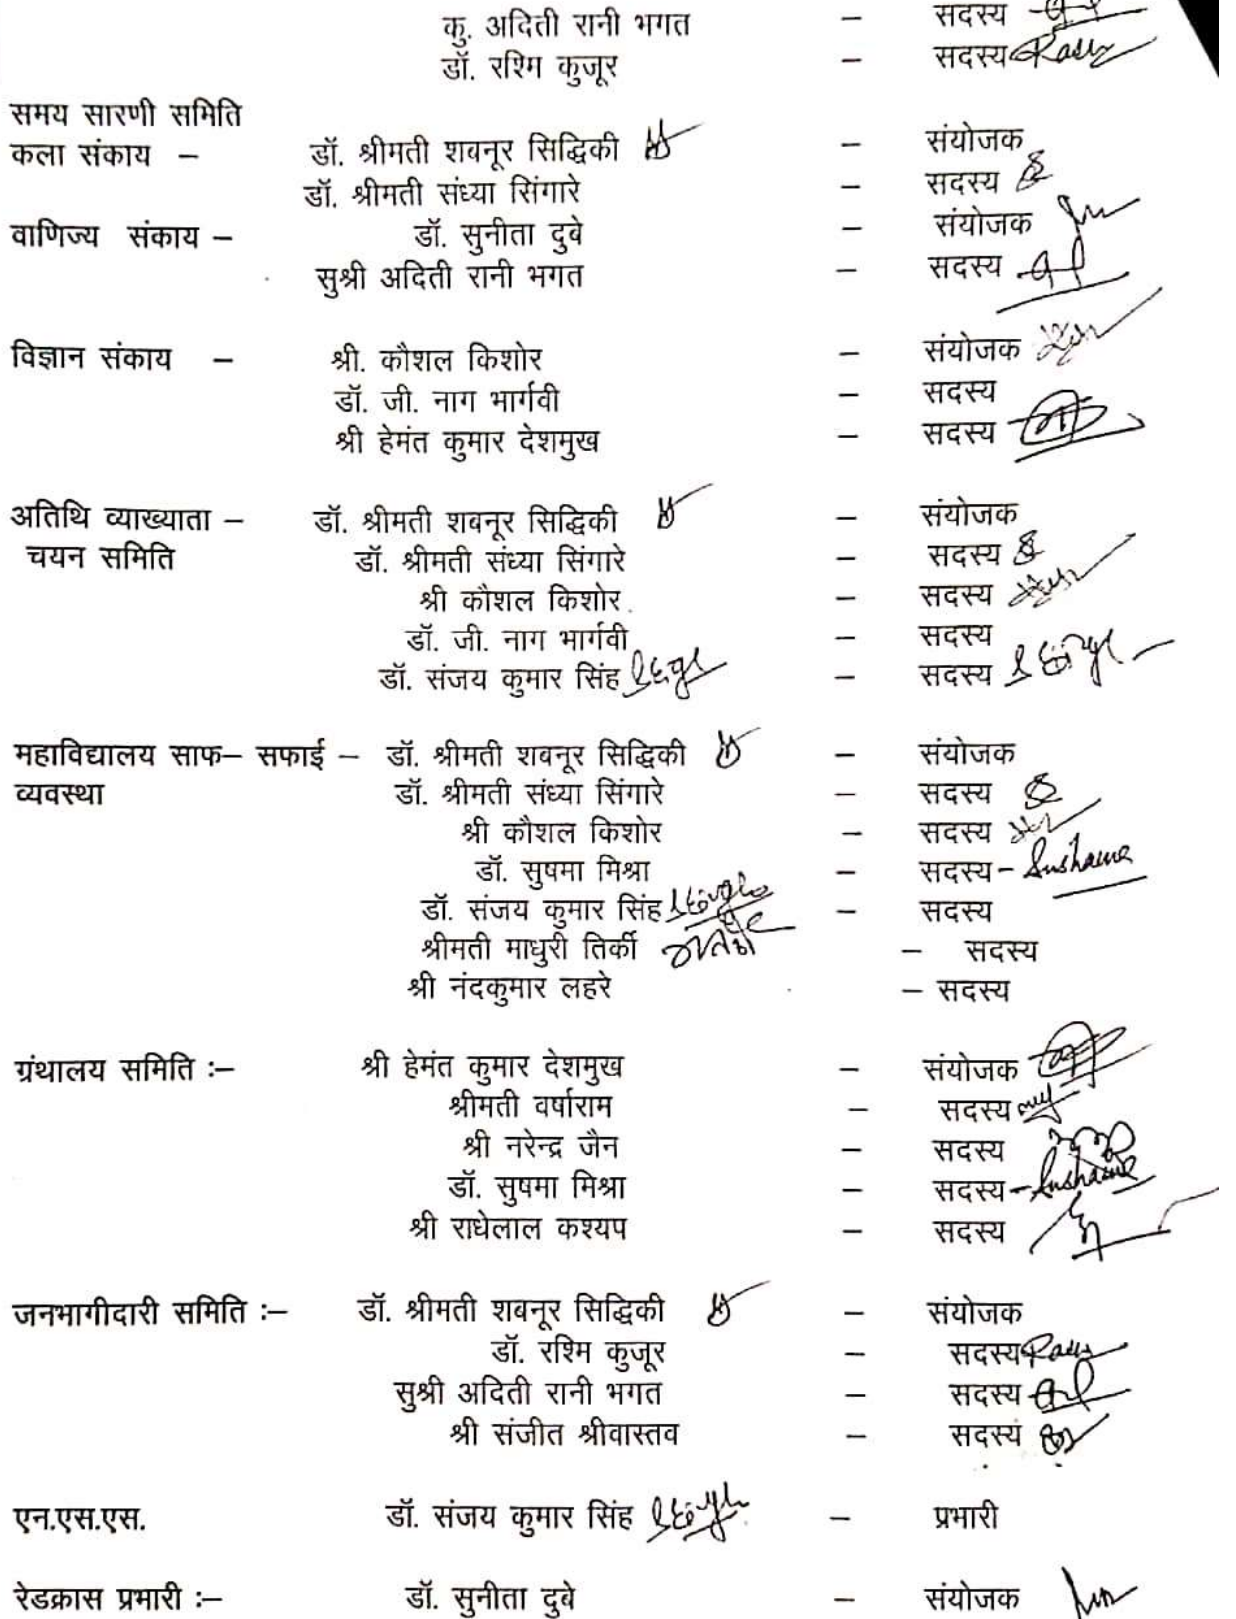 कु. अदिती रानी भगत – सदस्य
डॉ. रश्मि कुजूर – सदस्य
समय सारणी समिति
कला संकाय – डॉ. श्रीमती शबनूर सिद्धिकी – संयोजक
डॉ. श्रीमती संध्या सिंगारे – सदस्य
वाणिज्य संकाय – डॉ. सुनीता दुबे – संयोजक
सुश्री अदिती रानी भगत – सदस्य
विज्ञान संकाय – श्री. कौशल किशोर – संयोजक
डॉ. जी. नाग भार्गवी – सदस्य
श्री हेमंत कुमार देशमुख – सदस्य
अतिथि व्याख्याता – डॉ. श्रीमती शबनूर सिद्धिकी – संयोजक
चयन समिति डॉ. श्रीमती संध्या सिंगारे – सदस्य
श्री कौशल किशोर – सदस्य
डॉ. जी. नाग भार्गवी – सदस्य
डॉ. संजय कुमार सिंह – सदस्य
महाविद्यालय साफ– सफाई – डॉ. श्रीमती शबनूर सिद्धिकी – संयोजक
व्यवस्था डॉ. श्रीमती संध्या सिंगारे – सदस्य
श्री कौशल किशोर – सदस्य
डॉ. सुषमा मिश्रा – सदस्य – Sushama
डॉ. संजय कुमार सिंह – सदस्य
श्रीमती माधुरी तिर्की – सदस्य
श्री नंदकुमार लहरे – सदस्य
ग्रंथालय समिति :– श्री हेमंत कुमार देशमुख – संयोजक
श्रीमती वर्षाराम – सदस्य
श्री नरेन्द्र जैन – सदस्य
डॉ. सुषमा मिश्रा – सदस्य – Sushama
श्री राधेलाल कश्यप – सदस्य
जनभागीदारी समिति :– डॉ. श्रीमती शबनूर सिद्धिकी – संयोजक
डॉ. रश्मि कुजूर – सदस्य
सुश्री अदिती रानी भगत – सदस्य
श्री संजीत श्रीवास्तव – सदस्य
एन.एस.एस. डॉ. संजय कुमार सिंह – प्रभारी
रेडक्रास प्रभारी :– डॉ. सुनीता दुबे – संयोजक